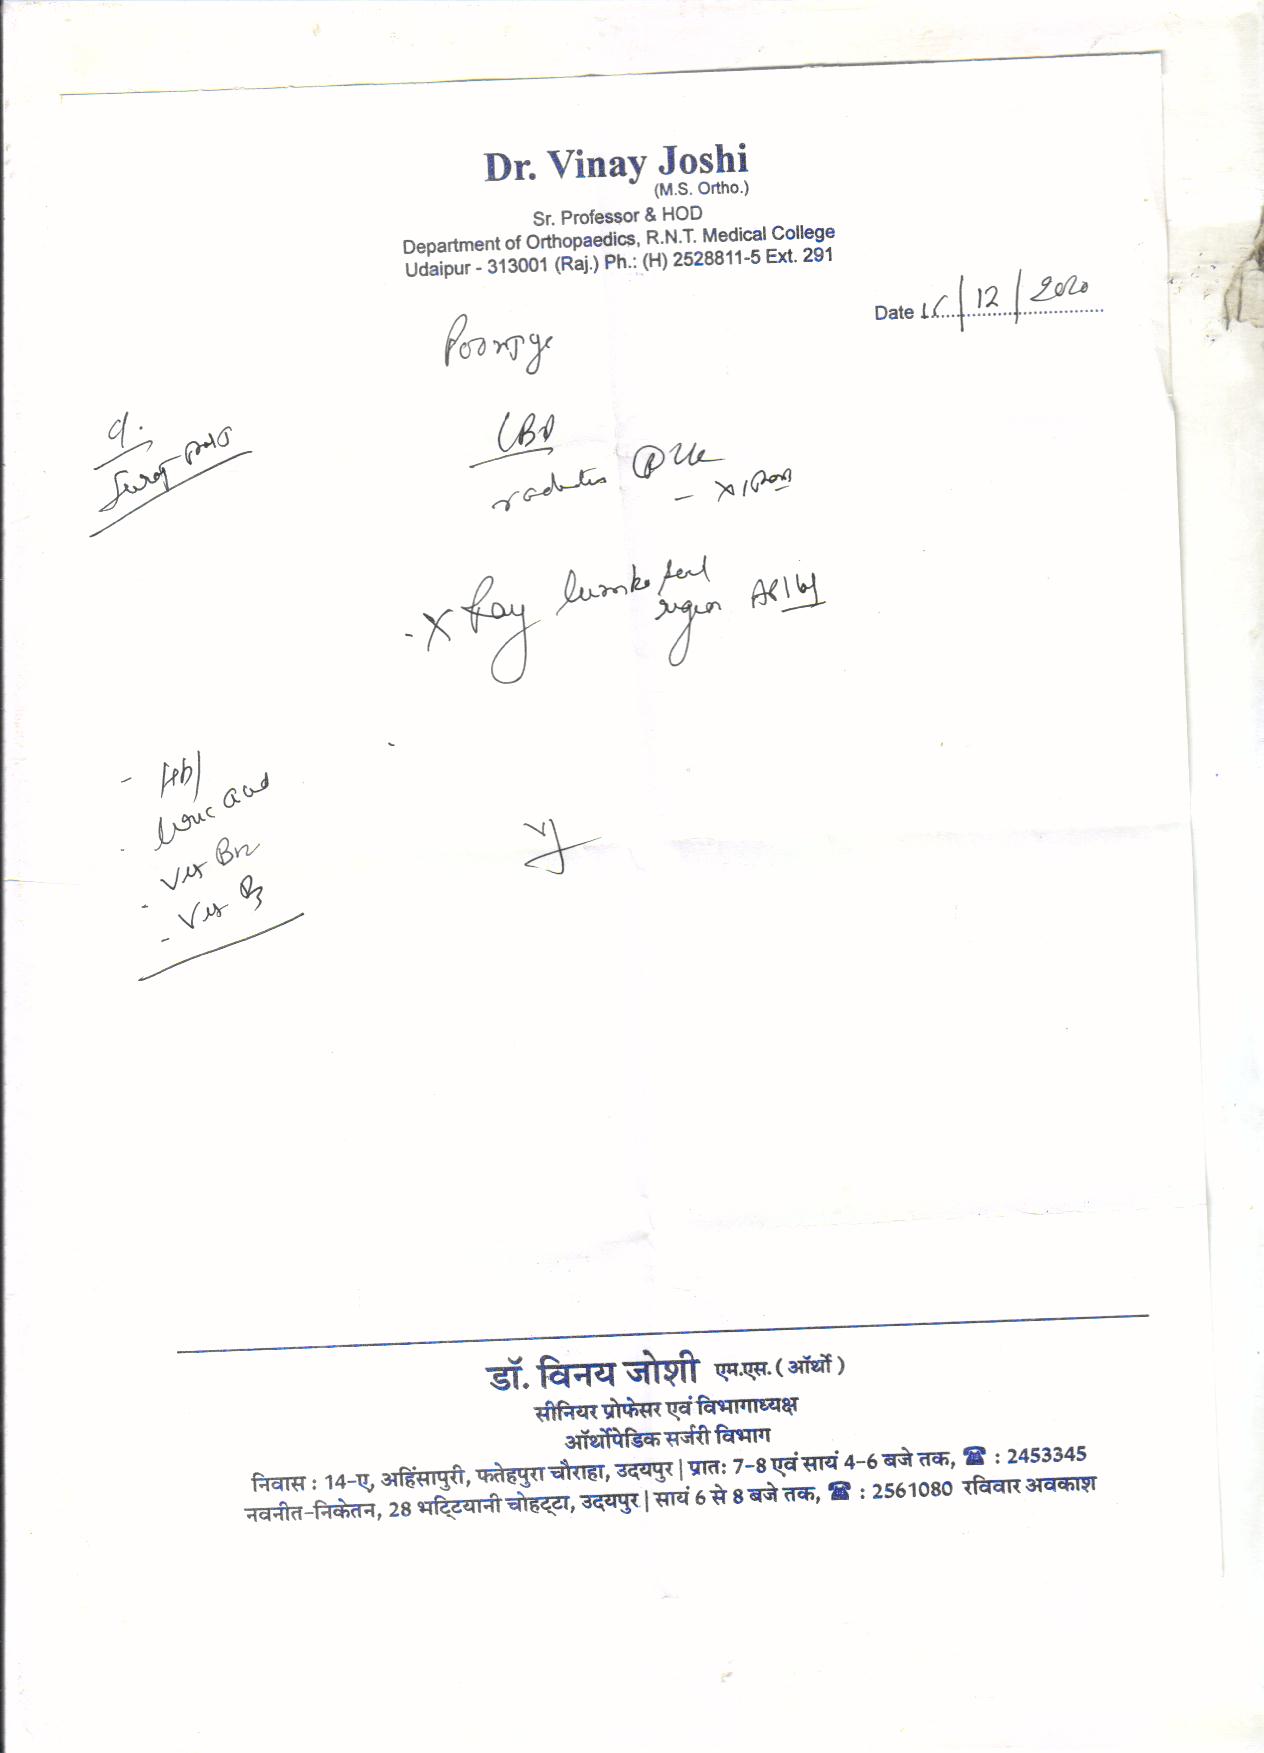 Dr. Vinay Joshi
(M.S. Ortho.)
Sr. Professor & HOD
Department of Orthopaedics, R.N.T. Medical College
Udaipur - 313001 (Raj.) Ph.: (H) 2528811-5 Ext. 291
Date /12/2020
LBP
radiates
- X Ray region AP/
- Hb/
- Uric acid
- Vit B12
- Vit D3
डॉ. विनय जोशी एम.एस. ( ऑर्थो )
सीनियर प्रोफेसर एवं विभागाध्यक्ष
ऑर्थोपेडिक सर्जरी विभाग
निवास : 14-ए, अहिंसापुरी, फतेहपुरा चौराहा, उदयपुर | प्रातः 7-8 एवं सायं 4-6 बजे तक, ☎ : 2453345
नवनीत-निकेतन, 28 भटि्टयानी चोहट्टा, उदयपुर | सायं 6 से 8 बजे तक, ☎ : 2561080 रविवार अवकाश